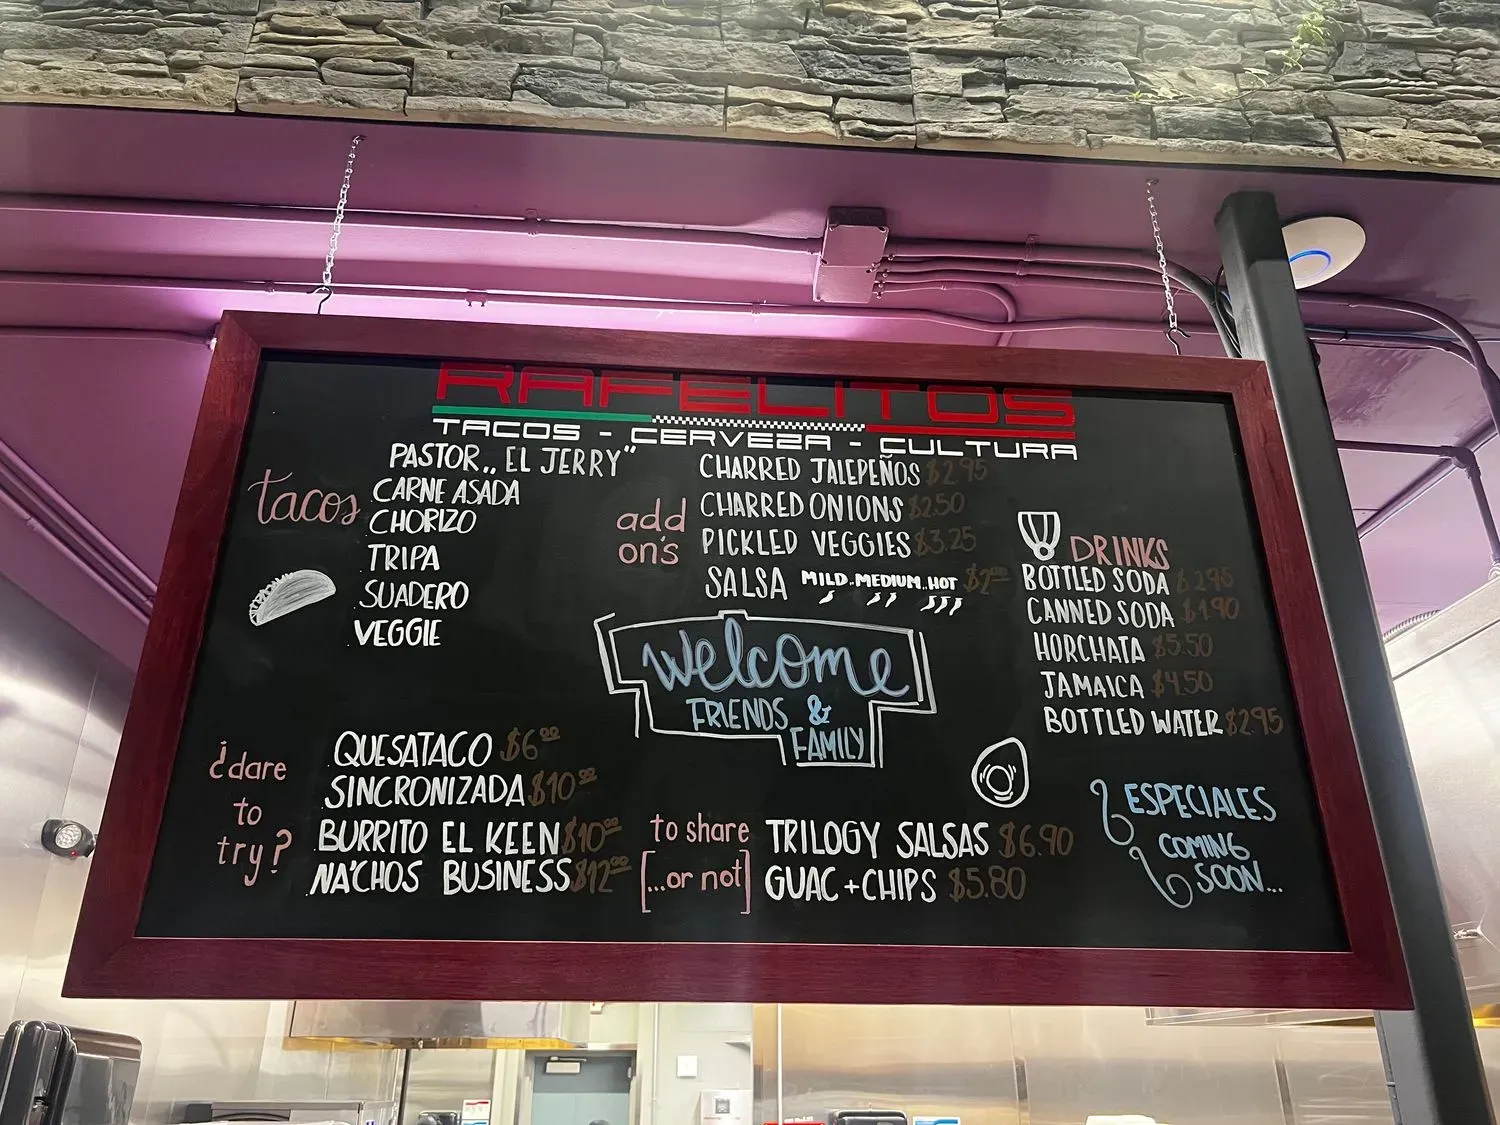 RAFELITOS
TACOS - CERVEZA - CULTURA
tacos
PASTOR „EL JERRY"
CARNE ASADA
CHORIZO
TRIPA
SUADERO
VEGGIE
add
on's
CHARRED JALEPEÑOS $2.95
CHARRED ONIONS $2.50
PICKLED VEGGIES $3.25
SALSA MILD..MEDIUM..HOT
DRINKS
BOTTLED SODA $2.95
CANNED SODA $1.90
HORCHATA $5.50
JAMAICA $4.50
BOTTLED WATER $2.95
welcome
FRIENDS &
FAMILY
¿dare
to
try?
QUESATACO $6.00
SINCRONIZADA $10.00
BURRITO EL KEEN $10.00
NACHOS BUSINESS $12.00
to share
[...or not]
TRILOGY SALSAS $6.90
GUAC+CHIPS $5.80
ESPECIALES
COMING
SOON...